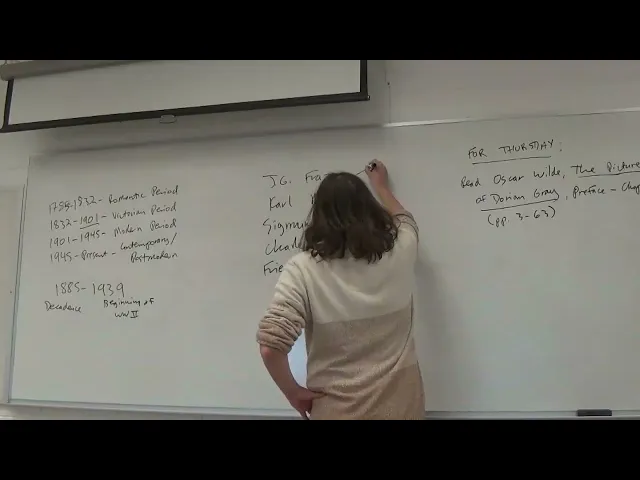 1785-1832- Romantic Period
1832-1901- Victorian Period
1901-1945- Modern Period
1945-Present- Contemporary/
Postmodern
1885-1939
Decadence
Beginning of
WWII
J.G. Fra
Karl
Sigmun
Charl
Frie
FOR THURSDAY:
Read Oscar Wilde, The Picture
of Dorian Gray, Preface - Chap
(pp. 3-63)